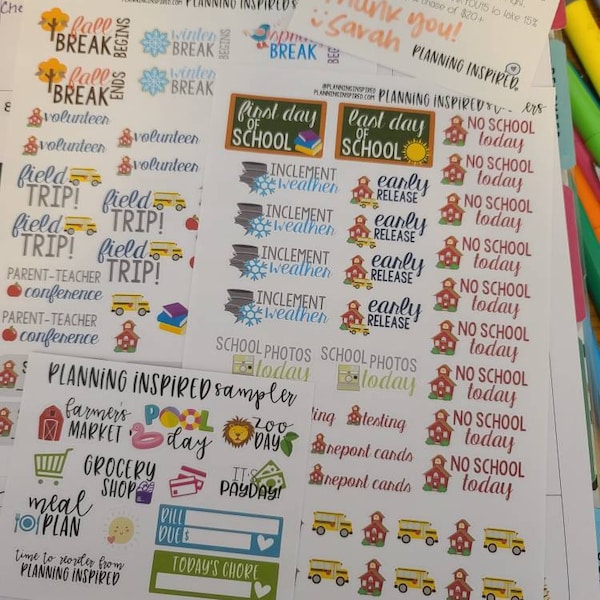 Che
fall
BREAK
BEGINS
winter
BREAK
BEGINS
BREAK
fall
BREAK
ENDS
winter
BREAK
volunteer
volunteer
volunteer
volunteer
field
TRIP!
field
TRIP!
field
TRIP!
field
TRIP!
PARENT-TEACHER
conference
PARENT-TEACHER
conference
to take 15%
chase of $20+
Thank you!
Sarah
PLANNING INSPIRED.
@PLANNINGINSPIRED
PLANNINGINSPIRED.COM
PLANNING INSPIRED
first day
OF
SCHOOL
last day
OF
SCHOOL
INCLEMENT
weather
INCLEMENT
weather
INCLEMENT
weather
INCLEMENT
weather
early
RELEASE
early
RELEASE
early
RELEASE
early
RELEASE
NO SCHOOL
today
NO SCHOOL
today
NO SCHOOL
today
NO SCHOOL
today
NO SCHOOL
today
NO SCHOOL
today
NO SCHOOL
today
NO SCHOOL
today
NO SCHOOL
today
SCHOOL PHOTOS
today
SCHOOL PHOTOS
today
testing
report cards
report cards
PLANNING INSPIRED sampler
farmer's
MARKET
POOL
day
ZOO
DAY
GROCERY
SHOP
IT'S
PAYDAY!
meal
PLAN
BILL
DUE
$
time to reorder from
PLANNING INSPIRED
TODAY'S CHORE